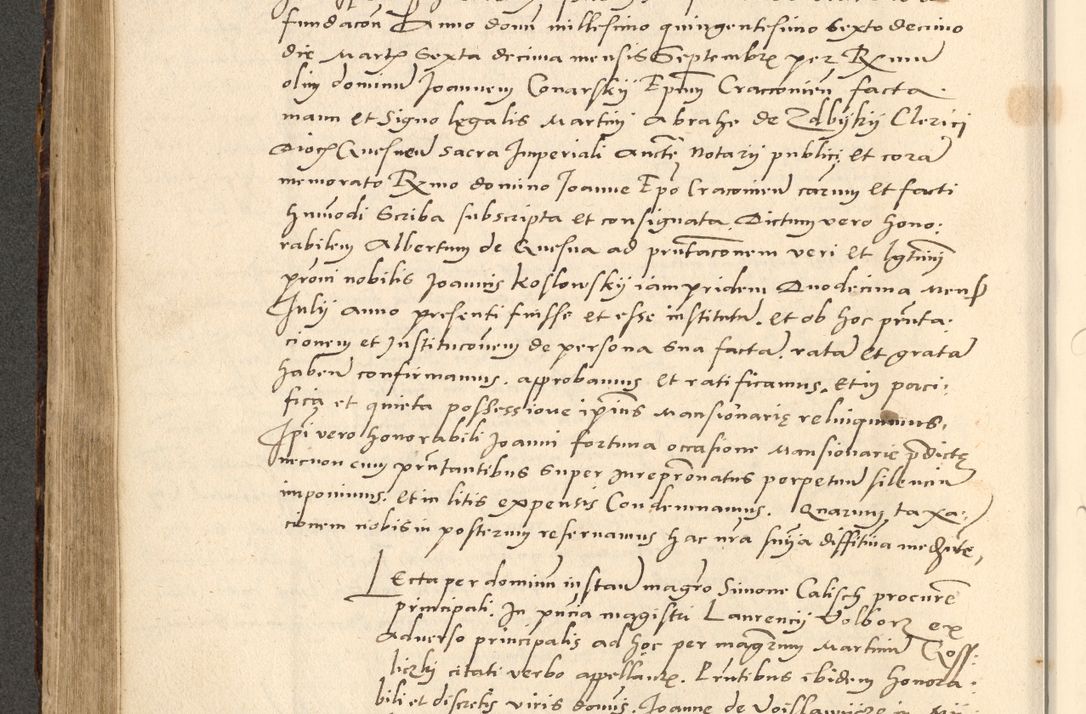 fundacon Anno domi millesimo quingentesimo Sexto decimo
die Martę Sexta decima mensis Septembrę per Rmu
olim dominu Joannem Conarskÿ Epum Cracouien facta
manu et Signo legalis Martini Abrahe de Zdbÿkÿ Clerici
Dioc Gnesnen Sacra Imperiali aucte Notarÿ publici et cora
memorato Rmo domino Joanne Epo Cracouien carum et facti
hmodi Scriba subscripta et consignata. Dictum vero hono:
rabilem Albertum de Gnesna ad pntaconem veri et lgtimi
proni nobilis Joannis Koslowskÿ iam pridem Duodecima Mens
Julÿ anno presenti fuisse et esse institutu. et ob hoc pnta:
cionem et Institucouem de persona sua facta. rata et grata
haben confirmamus. approbamus et ratificamus. Et in paci:
fica et quieta possessione ipius Mansionarie relinquimus.
Ipi vero honorabili Joanni fortuna occasione Mansionarie pdicte
necnon cum pntantibus super Jurepronatus perpetuu silenciu
imponimus. et in litis expensis Condemnamus. Quarum taxa:
cionem nobis in posterum reseruamus hac nra snia diffitiua mediate,
Lecta per dominu in stan magro Simone Calisch procure
principali. In pncia magistri Laurencÿ Dolborz ex
Aduerso principalis ad hoc per magrum Martinu Goss:
liczki citati verbo appellante. Pntibus ibidem honora:
bili et discretis viris domis. Joanne de Voislawicze in